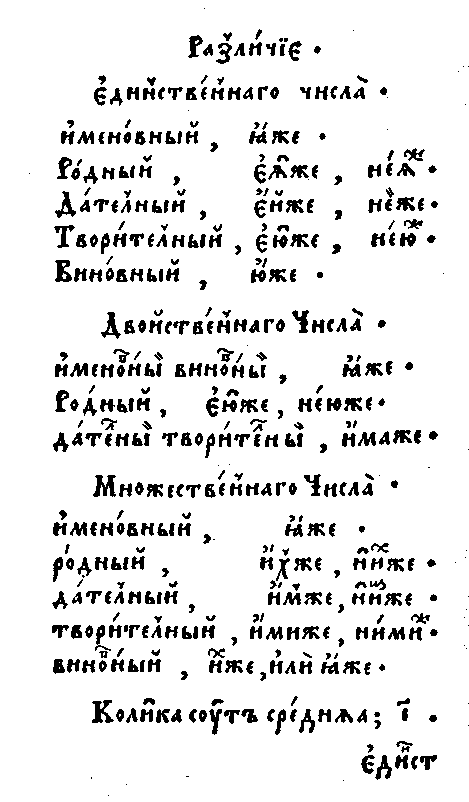 Разли́чїе .
є҆ди́нстве́ннаго числа̀ .
и҆мено́вный , ꙗ҆́же .
Ро́дный , є҆ѧ́же , не́ѧж .
Да́телный , є҆́йже , не́йже .
Твори́телный , є҆ю́же , не́юж .
Вино́вный , ю҆́же .
Дво́йстве́ннаго Числа̀ .
и҆меновны̀ виновны̀ , ꙗ҆́же .
Ро́дный , є҆ю́же , не́юже .
да́телны̀ твори́телны̀ , и҆́маже .
Мно́жестве́ннаго Числа̀ .
и҆мено́вный , ꙗ҆́же .
ро́дный , и҆́хже , ни́хже .
да́телный , и҆́мже , ни́мже .
твори́телный , и҆́миже , ни́миж .
вино́вный , и҆̀хже , и҆лѝ ꙗ҆́же .
Коли́ка соу́тъ сре́дняѧ ; г҃ .
є҆ди́нст